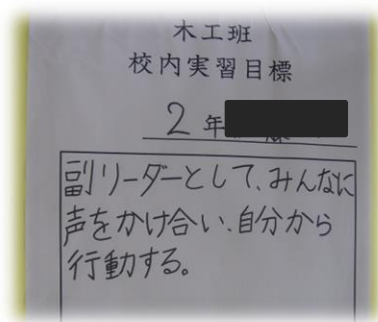 木工班
校内実習目標
2年
副リーダーとして、みんなに
声をかけ合い、自分から
行動する。